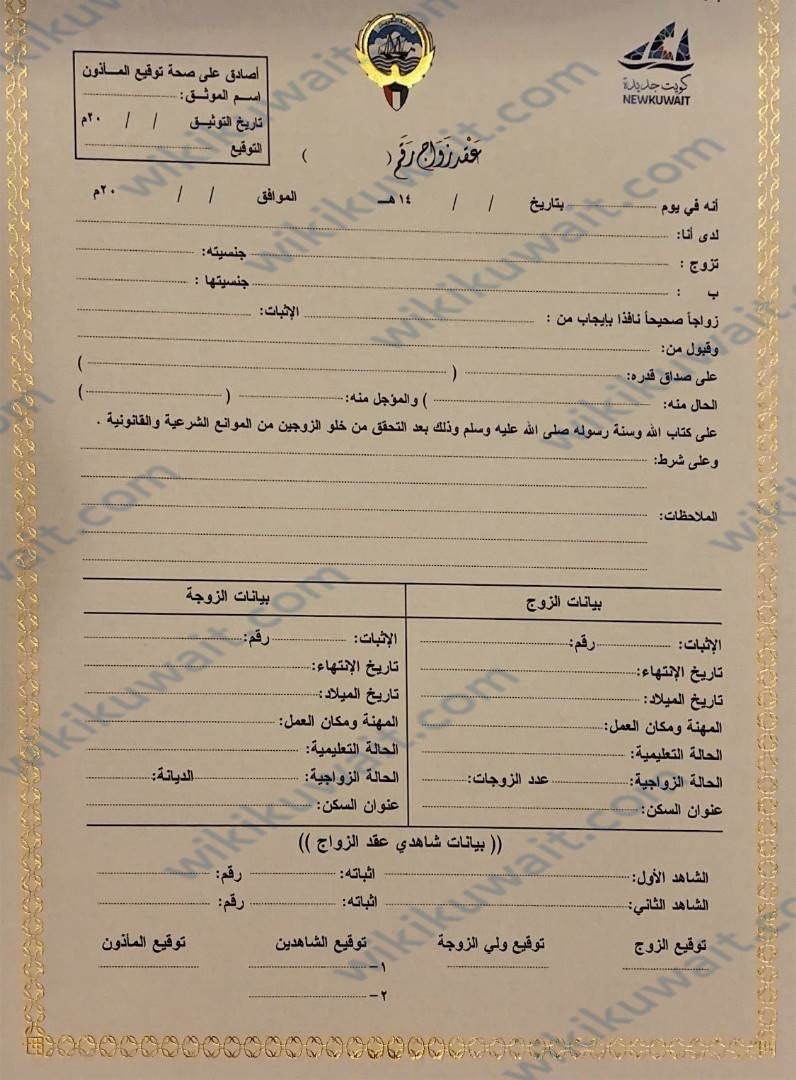 كويت جديدة
NEWKUWAIT
أصادق على صحة توقيع المـأذون
اسـم الموثـق:
تاريخ التوثيـق / / ٢٠م
التوقيع
عقد زواج رقم ( )
أنه في يوم بتاريخ / / ١٤هـ الموافق / / ٢٠م
لدى أنا:
تزوج : جنسيته:
ب : جنسيتها :
زواجاً صحيحاً نافذا بإيجاب من : الإثبات:
وقبول من:
على صداق قدره: ( )
الحال منه: ) والمؤجل منه: ( )
على كتاب الله وسنة رسوله صلى الله عليه وسلم وذلك بعد التحقق من خلو الزوجين من الموانع الشرعية والقانونية .
وعلى شرط:
الملاحظات:
بيانات الزوج بيانات الزوجة
الإثبات: رقم: الإثبات: رقم:
تاريخ الإنتهاء: تاريخ الإنتهاء:
تاريخ الميلاد: تاريخ الميلاد:
المهنة ومكان العمل: المهنة ومكان العمل:
الحالة التعليمية: الحالة التعليمية:
الحالة الزواجية: عدد الزوجات: الحالة الزواجية: الديانة:
عنوان السكن: عنوان السكن:
(( بيانات شاهدي عقد الزواج ))
الشاهد الأول: اثباته: رقم:
الشاهد الثاني: اثباته: رقم:
توقيع الزوج توقيع ولي الزوجة توقيع الشاهدين توقيع المأذون
١-
٢-
wikikuwait.com